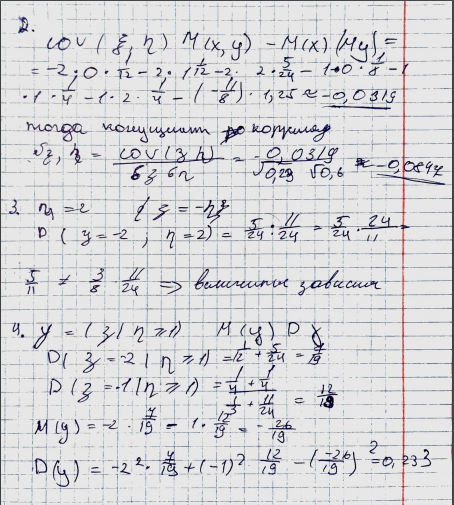 2.
cov(ξ, η) M(x,y) - M(x)(My) =
= -2·0·1/12 - 2·1·1/12 - 2· 2·5/24 - 1·0·1/8 - 1
·1·1/4 - 1·2·1/4 - (-11/8)·1,25 ≈ -0,0319
тогда корреляц
= cov(ξ η)/бξ бη = -0,0319/√0,23 √0,6 ≈ -0,0847
3. η = 2 ξ = -2
D(ξ = -2; η = 2) = 5/24 : 11/24 = 5/24 · 24/11 =
5/11 ≠ 3/8 · 11/24 => величины зависим
4. y = (ξ | η ⩾ 1) M(y) D y
D(ξ = -2 | η ⩾ 1) = 1/12 + 5/24 = 7/19
D(ξ = -1 | η ⩾ 1) = (1/4 + 1/4)/(1/3 + 11/24) = 12/19
M(y) = -2 · 7/19 - 1 · 12/19 = -26/19
D(y) = -2² · 7/19 + (-1)² · 12/19 - (-26/19)² = 0,233